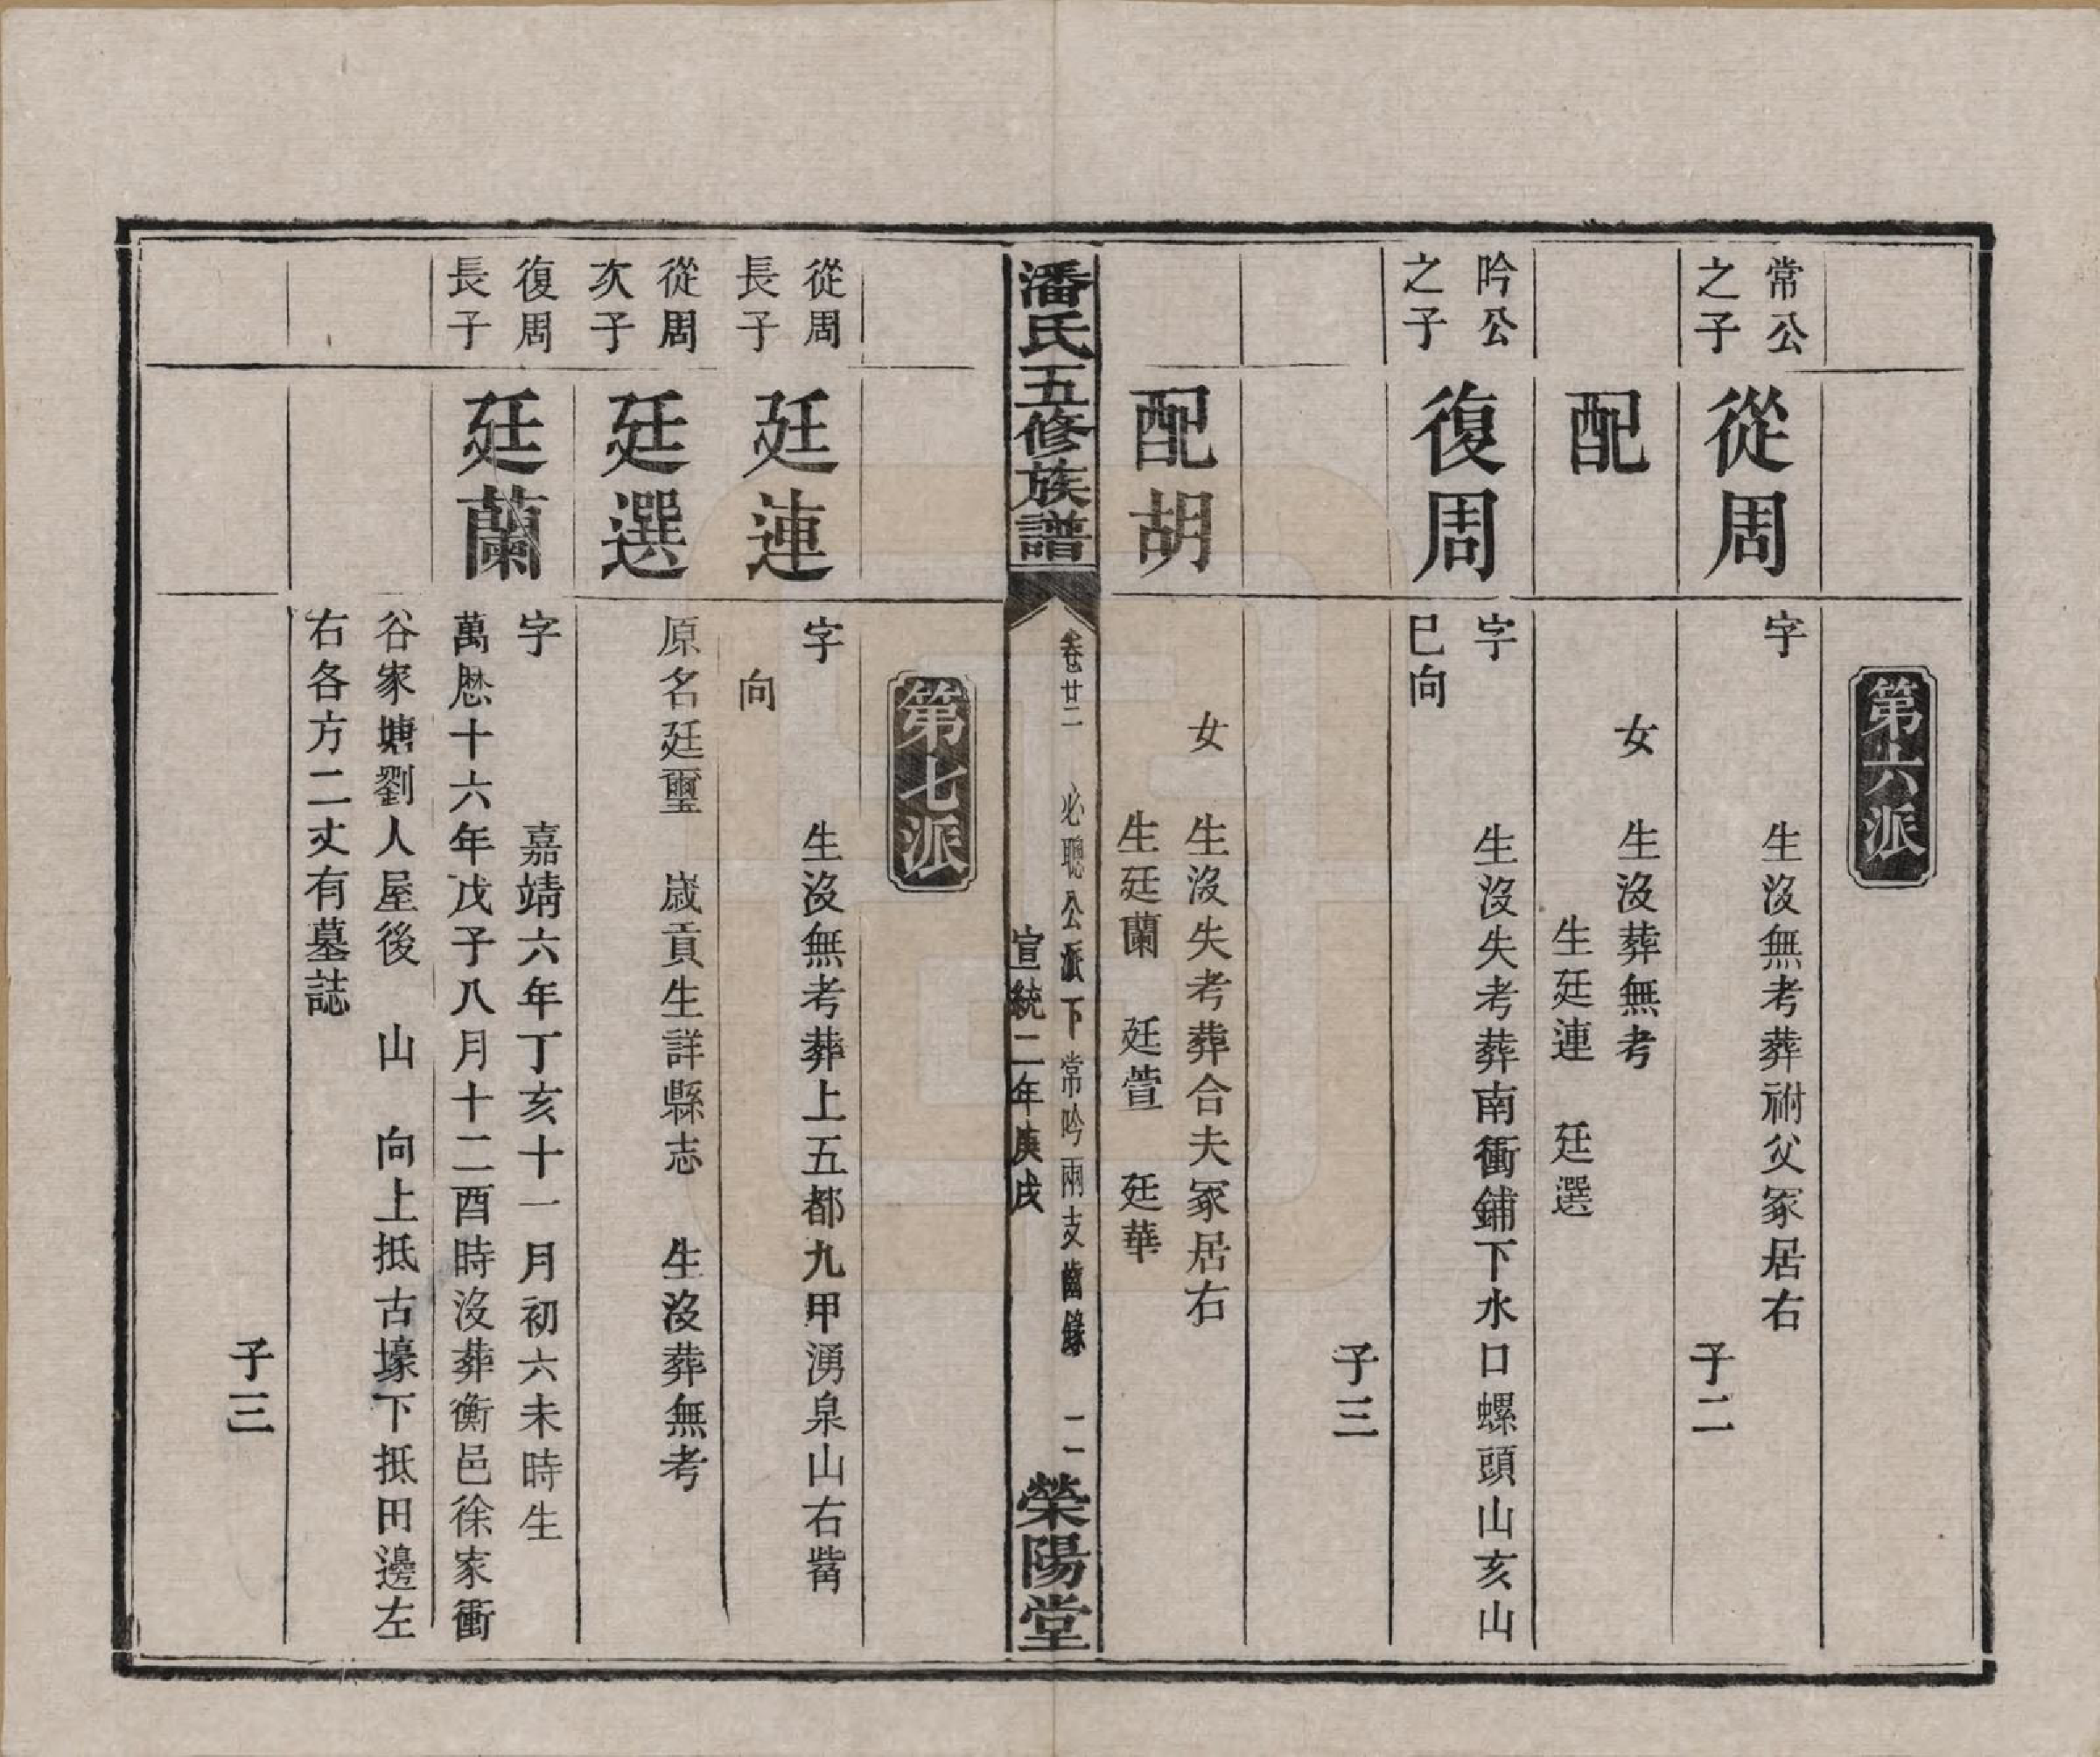 第六派
常公
之子
從周
字　生沒無考葬祔父冢居右
子二
配
女　生沒葬無考
生廷連　廷選
吟公
之子
復周
字　生沒失考葬南衝鋪下水口螺頭山亥山
巳向
子三
配胡
女　生沒失考葬合夫冢居右
生廷蘭　廷萱　廷華
潘氏五修族譜
卷廿二　必聰公派下常吟兩支齒錄　二一
宣統二年庚戌
榮陽堂
第七派
從周
長子
廷連
字　生沒無考葬上五都九甲湧泉山右觜
向
從周
次子
廷選
原名廷璽　歲貢生詳縣志　生沒葬無考
復周
長子
廷蘭
字　嘉靖六年丁亥十一月初六未時生
萬厯十六年戊子八月十二酉時沒葬衡邑徐家衝
谷家塘劉人屋後　山　向上抵古壕下抵田邊左
右各方二丈有墓誌
子三